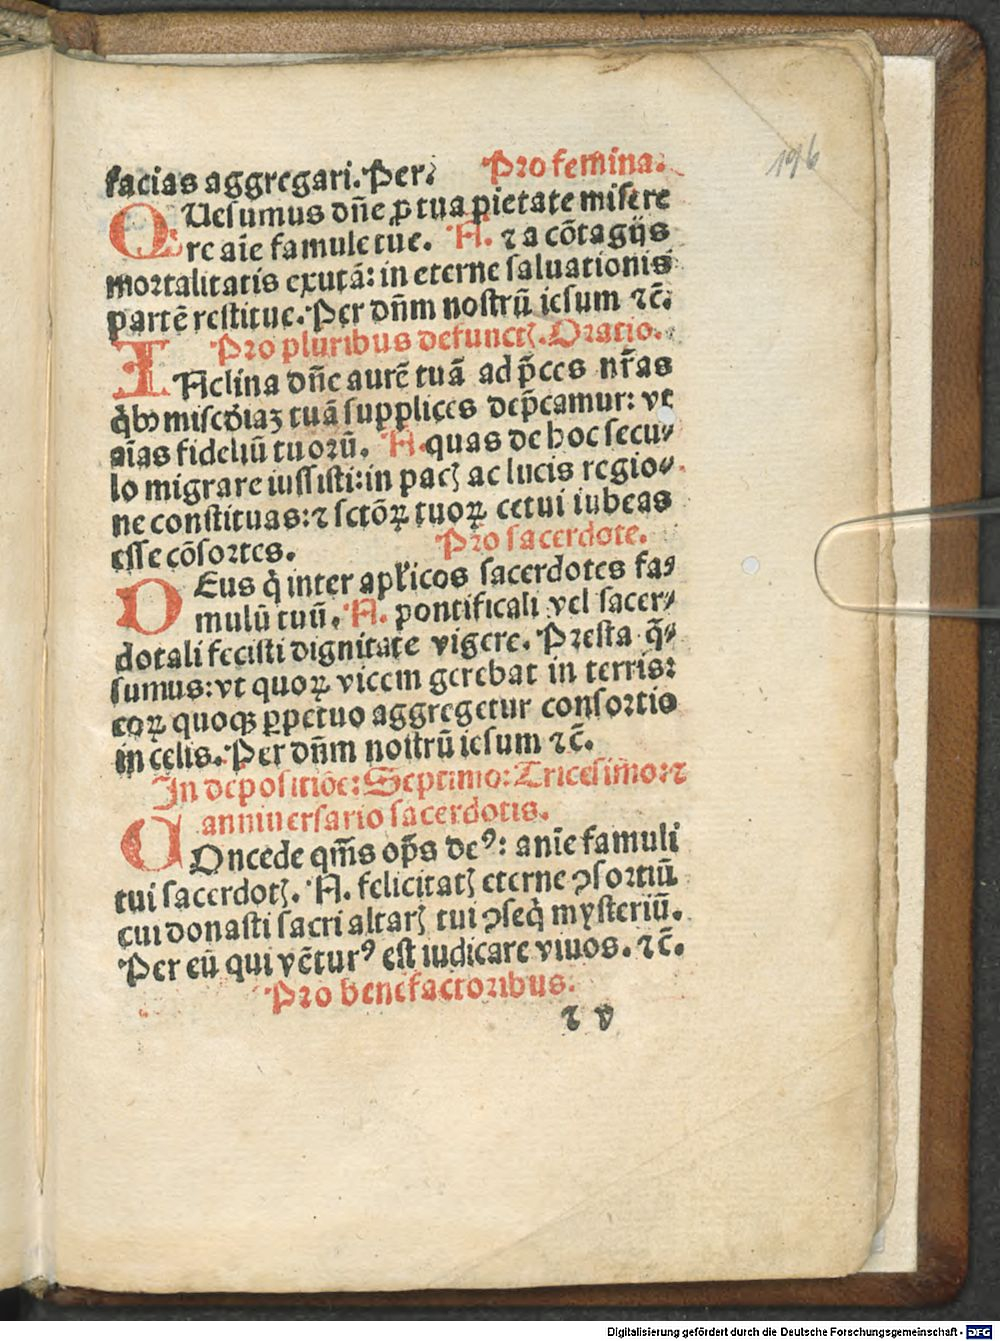 196
facias aggregari. Per. Pro femina.
QUesumus dn̄e ꝓ tua pietate misere
re aīe famule tue. N. ⁊ a cōtagijs
mortalitatis exutā: in eterne saluationis
partē restitue. Per dn̄m nostrū iesum ⁊c̄.
Pro pluribus defunctꝭ. Oratio.
INclina dn̄e aurē tuā ad p̄ces nr̄as
qͥbꝰ mis̄cdiaꝫ tuā supplices dep̄camur: vt
aīas fideliū tuorū. N. quas de hoc secu-
lo migrare iussisti: in pacꝭ ac lucis regio-
ne constituas: ⁊ sctōꝝ tuoꝝ cetui iubeas
esse cōsortes. Pro sacerdote.
DEus qͥ inter apl'icos sacerdotes fa-
mulū tuū. N. pontificali vel sacer-
dotali fecisti dignitate vigere. Presta q̄-
sumus: vt quoꝝ vicem gerebat in terris:
eoꝝ quoqꝫ ꝑpetuo aggregetur consortio
in celis. Per dn̄m nostrū iesum ⁊c̄.
In depositiōe: Septimo: Tricesimo: ⁊
anniuersario sacerdotis.
COncede qm̄s op̄s deꝰ: anīe famuli
tui sacerdotꝭ. N. felicitatꝭ eterne ꝯsortiū
cui donasti sacri altarꝭ tui ꝯseqͥ mysteriū.
Per eū qui vēturꝰ est iudicare viuos. ⁊c̄.
Pro benefactoribus.
⁊ v
Digitalisierung gefördert durch die Deutsche Forschungsgemeinschaft - DFG